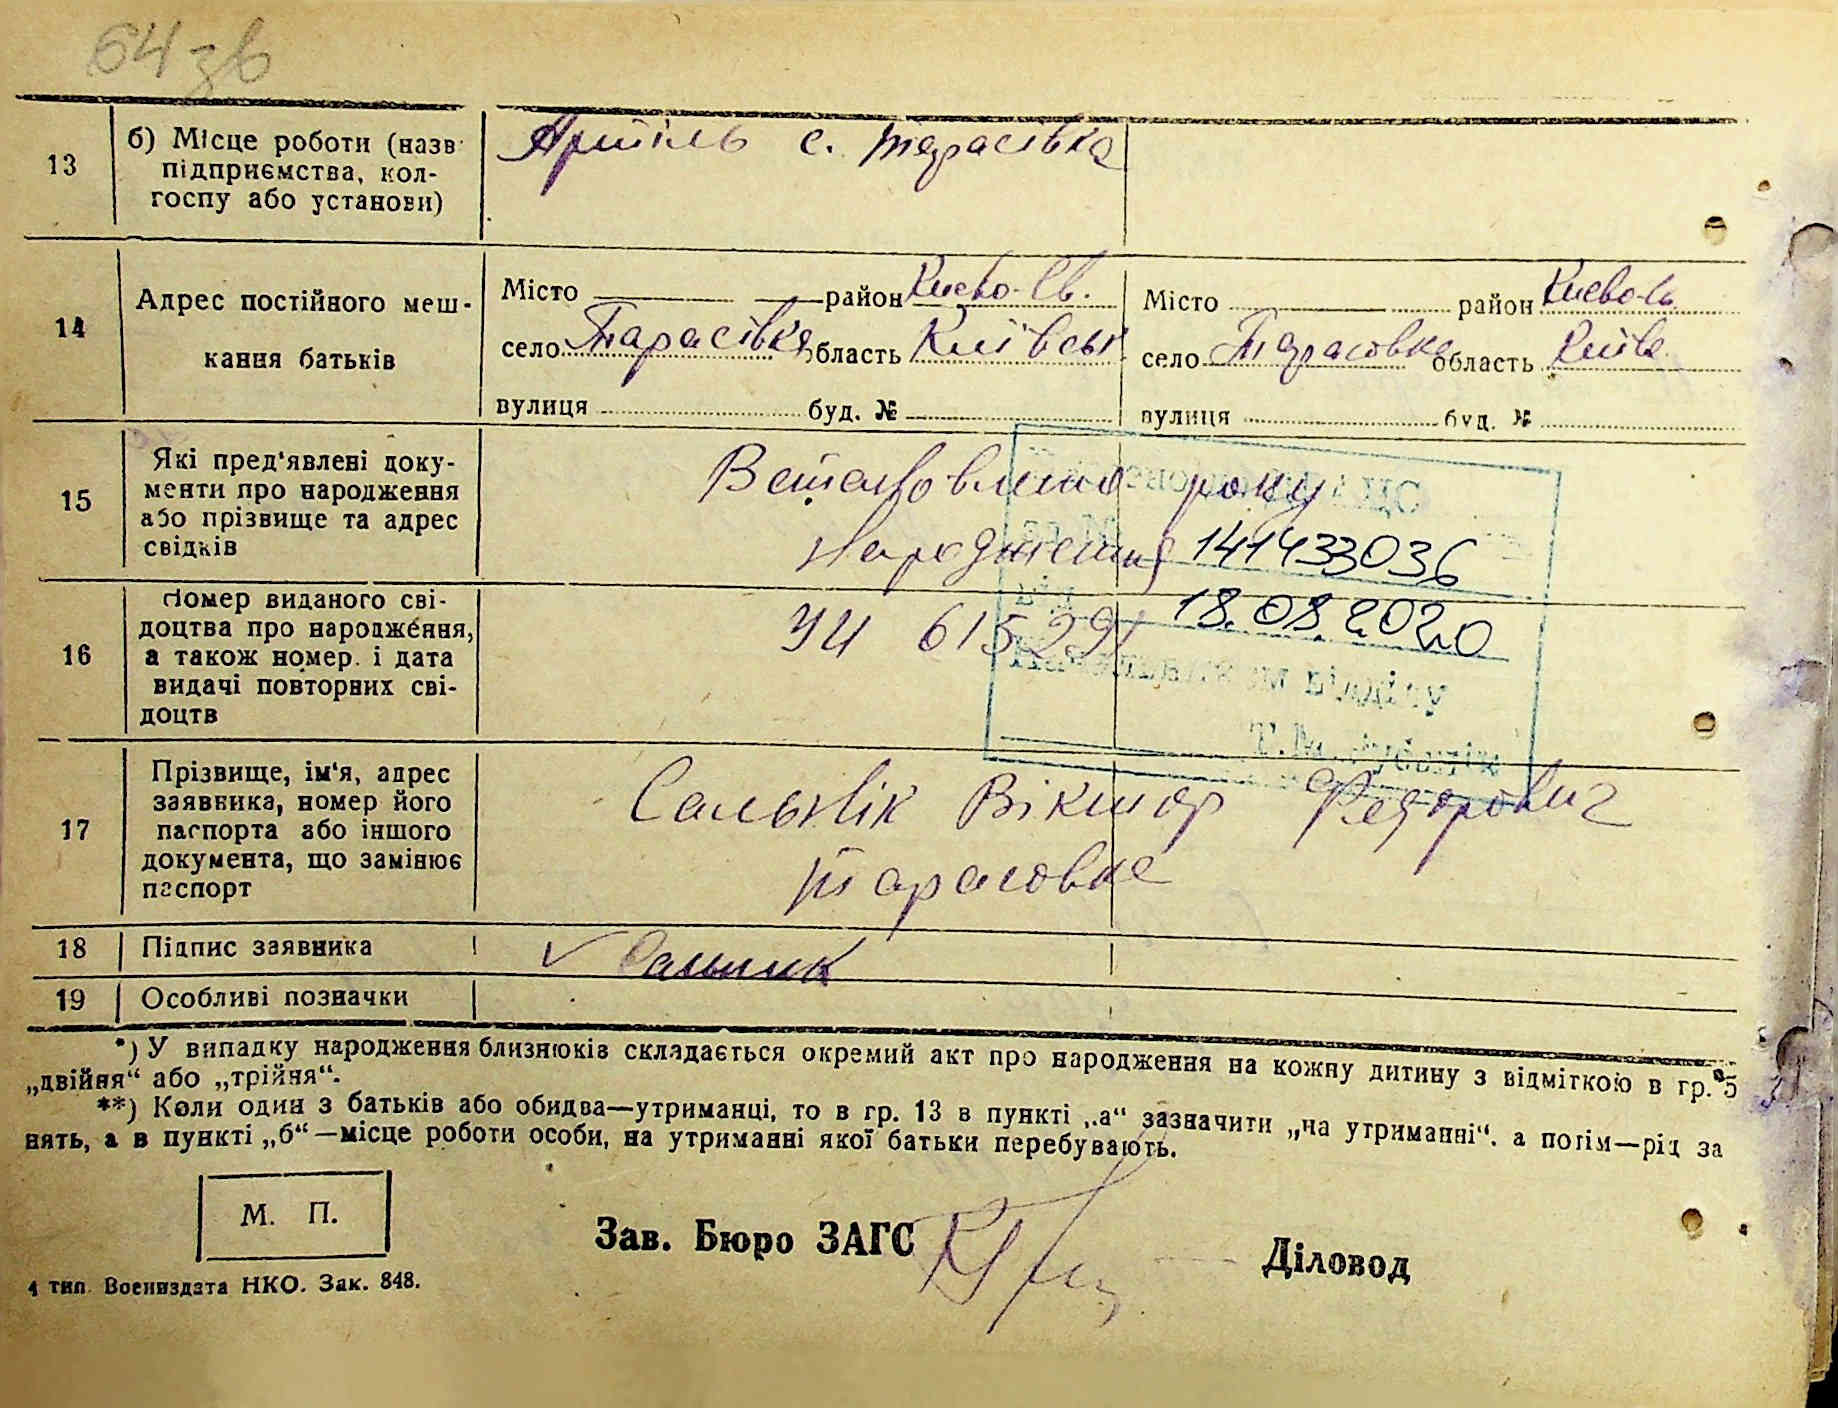 64 зв
13
б) Місце роботи (назв
підприємства, кол-
госпу або установи)
Артіль с. Тарасівка
14
Адрес постійного меш-
кання батьків
Місто район Києво-Св.
село Тарасівка область Київськ
вулиця буд. №
Місто район Києво-Св
село Тарасовка область Київ
вулиця буд. №
15
Які пред'явлені доку-
менти про народження
або прізвище та адрес
свідків
Встановлено року
народження
141433036
18.08.2020
16
Номер виданого сві-
доцтва про народження,
а також номер і дата
видачі повторних сві-
доцтв
УЧ 615291
17
Прізвище, ім'я, адрес
заявника, номер його
паспорта або іншого
документа, що замінює
паспорт
Сальнік Віктор Федорович
Тарасовка
18
Підпис заявника
Сальник
19
Особливі позначки
*) У випадку народження близнюків складається окремий акт про народження на кожну дитину з відміткою в гр. 5
„двійня“ або „трійня“.
**) Коли один з батьків або обидва—утриманці, то в гр. 13 в пункті „а“ зазначити „на утриманні“. а потім—рід за
нять, а в пункті „б“—місце роботи особи, на утриманні якої батьки перебувають.
М. П.
Зав. Бюро ЗАГС
Діловод
4 тип. Воениздата НКО. Зак. 848.